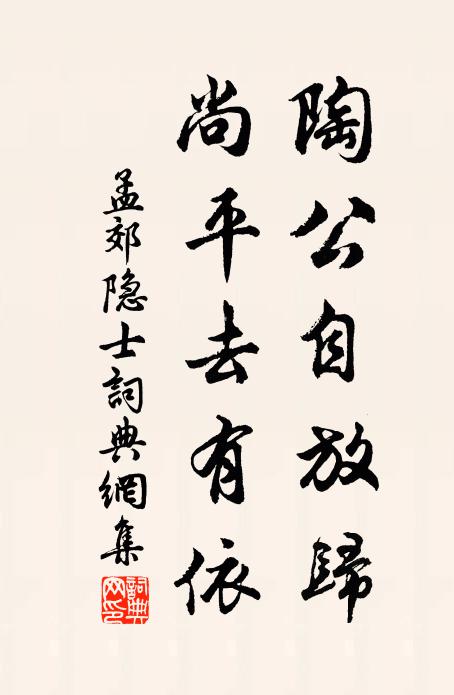 陶公自放歸
尚平去有依
孟郊隐士詞典網集
詞典网印